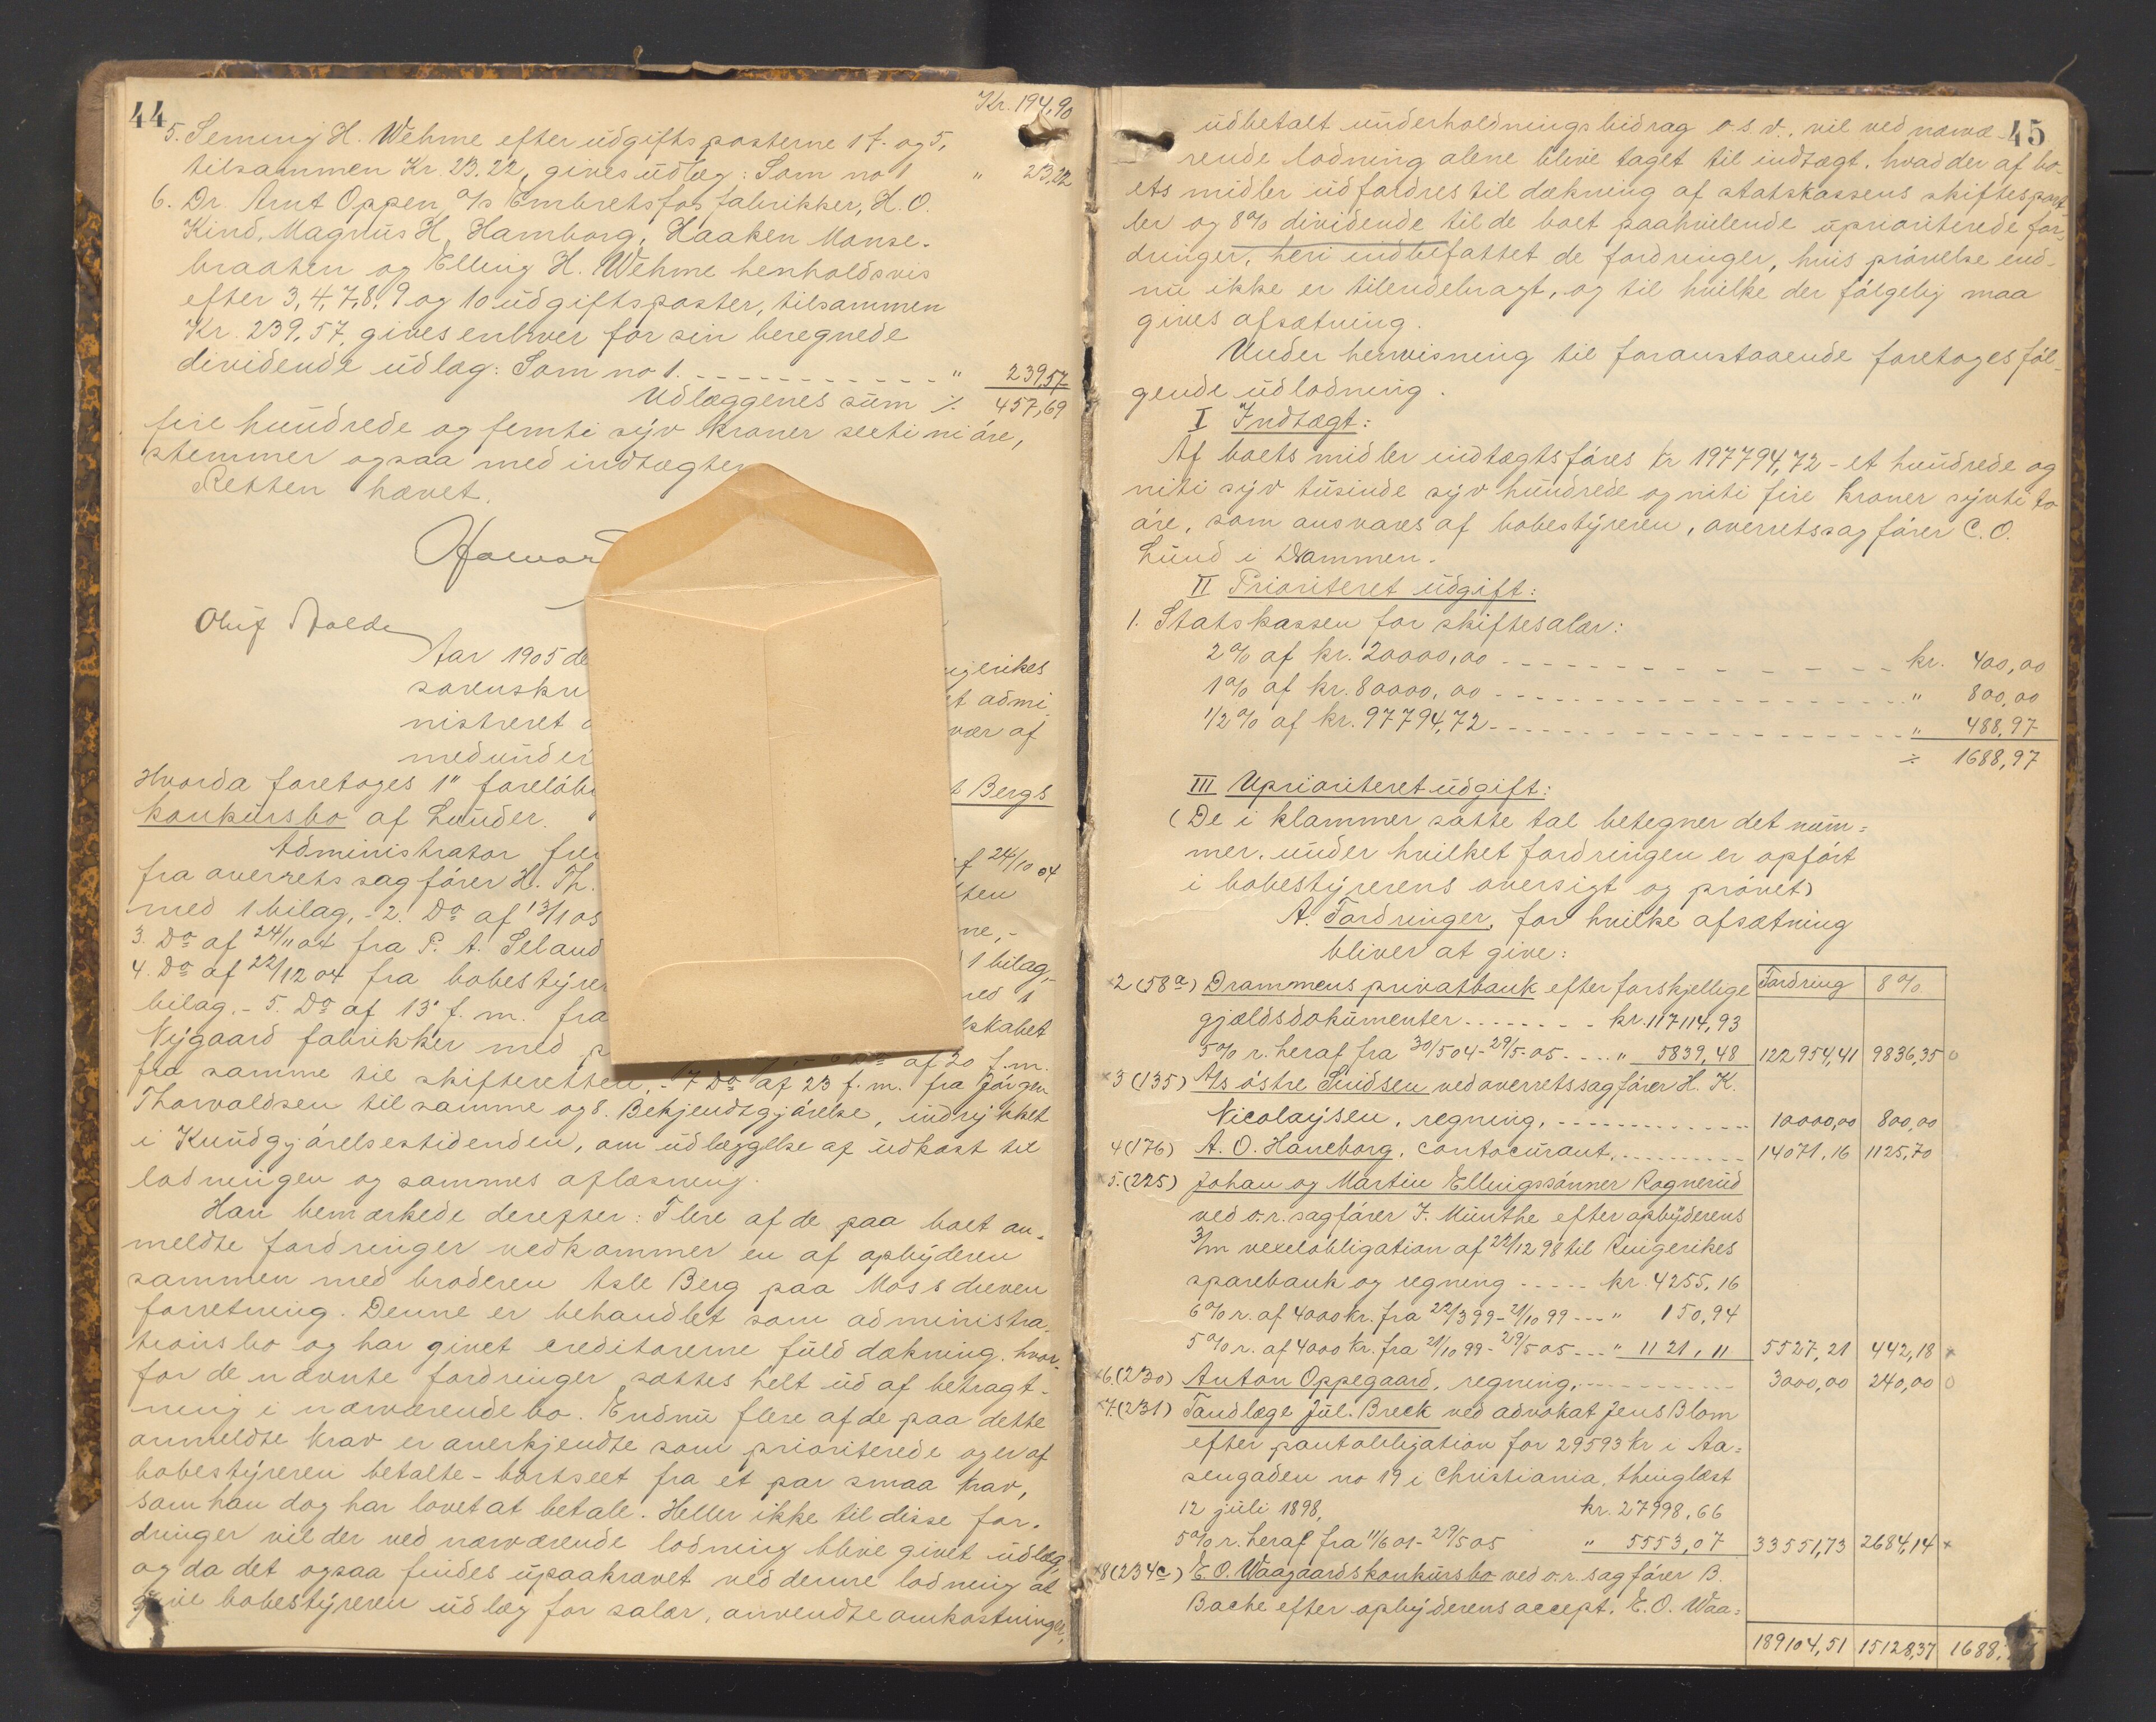 44
Kr. 194,90
5. Seming H. Wehme efter udgiftsposterne 1 f. og 5,
tilsammen Kr. 23.22, gives udlæg: Som no 1 " 23,22
6. Dr. Arnt Oppen, A/s Embretsfos fabrikker, H. O.
Kind, Magnus H. Hamborg, Haaken Monse-
braaten og Elling H. Wehme henholdsvis
efter 3, 4, 7, 8, 9 og 10 udgiftsposter, tilsammen
Kr. 239,57, gives enhver for sin beregnede
dividende udlæg: Som no 1. " 239,57
Udlæggenes sum ./. 457,69
fire hundrede og femti syv kroner sexti ni øre,
stemmer ogsaa med indtægten
Retten hævet.
Oluf Bolde
Aar 1905 de
sorenskri
ngerikes
et admi-
nistreret
vær af
medunder
Hvorda foretoges 1" foreløbi
t Bergs
konkursbo af Lunder.
Administrator fre
f 24/10 04
fra overretssagfører H. Th.
tten
med 1 bilag, - 2. Do af 13/1 05
ne, -
3. Do af 24/11 04 fra P. A. Seland
1 bilag, -
4. Do af 22/12 04 fra bobestyrer
red 1
bilag. - 5. Do af 13' f. m. fra
lskabet
Nygaard fabrikker med p
af 20 f. m.
fra samme til skifteretten, - 7 Do af 23 f. m. fra Jørgen
Thorvaldsen til samme og 8. Bekjendtgjørelse, indrykket
i Kundgjørelsestidenden, om udlæggelse af udkast til
lodningen og sammes aflæsning.
Han bemærkede derefter: Flere af de paa boet an-
meldte fordringer vedkommer en af opbyderen
sammen med broderen Asle Berg paa Moss dreven
forretning. Denne er behandlet som administra-
tionsbo og har givet creditorerne fuld dækning. hvor-
for de nævnte fordringer sættes helt ud af betragt-
ning i nærværende bo. Endnu flere af de paa dette
anmeldte krav er anerkjendte som prioriterede og er af
bobestyreren betalte - bortseet fra et par smaa krav,
som han dog har lovet at betale. Heller ikke til disse for-
dringer vil der ved nærværende lodning blive givet udlæg,
og da det ogsaa findes upaakrævet ved denne lodning at
give bobestyreren udlæg for salær, anvendte omkostninger,
45
udbetalt underholdningsbidrag o. s. v., vil ved nærvæ-
rende lodning alene blive taget til indtægt, hvad der af bo-
ets midler udfordres til dækning af statskassens skiftespart-
ler og 8% dividende til de boet paahvilende uprioriterede for-
dringer, heri indbefattet de fordringer, hvis prøvelse end-
nu ikke er tilendebragt, og til hvilke der følgelig maa
gives afsætning.
Under henvisning til foranstaaende foretoges føl-
gende udlodning.
I Indtægt:
Af boets midler indtægtsføres kr 197794,72 - et hundrede og
niti syv tusinde syv hundrede og niti fire kroner sytti to
øre, som ansvares af bobestyreren, overretssagfører C. O.
Lund i Drammen.
II Prioriteret udgift:
1. Statskassen for skiftesalær:
2% af kr. 20000,00 kr. 400,00
1% af kr. 80000,00 " 800,00
1/2% af kr. 97794,72 " 488,97
./. 1688,97
III Uprioriteret udgift:
(De i klammer satte tal betegner det num-
mer, under hvilket fordringen er opført
i bobestyrerens oversigt og prøvet)
A. Fordringer, for hvilke afsætning
bliver at give:
Fordring 8%
2 (58a) Drammens privatbank efter forskjellige
gjældsdokumenter kr. 117114,93
5% r. heraf fra 30/5 04 - 29/5 05 " 5839,48 122954,41 9836,35 o
3 (135) A/s østre Snidsen ved overretssagfører H. K.
Nicolaysen, regning, 10000,00 800,00
4 (176) A. O. Haneborg, contocurant, 14071,16 1125,70
5. (225) Johan og Martin Ellingssønner Rognerud
ved o. r. sagfører F. Munthe efter opbyderens
3/m vexelobligation af 22/12 98 til Ringerikes
sparebank og regning kr. 4255,16
6% r. af 4000 kr. fra 22/3 99 - 21/10 99 " 150,94
5% r. af 4000 kr. fra 21/10 99 - 29/5 05 " 1121,11 5527,21 442,18 x
6. (230) Anton Oppegaard, regning, 3000,00 240,00 o
7. (231) Tandlæge Jul. Breck ved advokat Jens Blom
efter pantobligation for 29593 kr i Aa-
sengaden no 19 i Christiania, thinglæst
12 juli 1898, kr. 27998,66
5% r. heraf fra 11/6 01 - 29/5 05 " 5553,07 33551,73 2684,14 x
8 (234c) E. O. Waagaards konkursbo ved o. r. sagfører B.
Bache efter opbyderens accept, E. O. Waa-
189104,51 15128,37 1688,